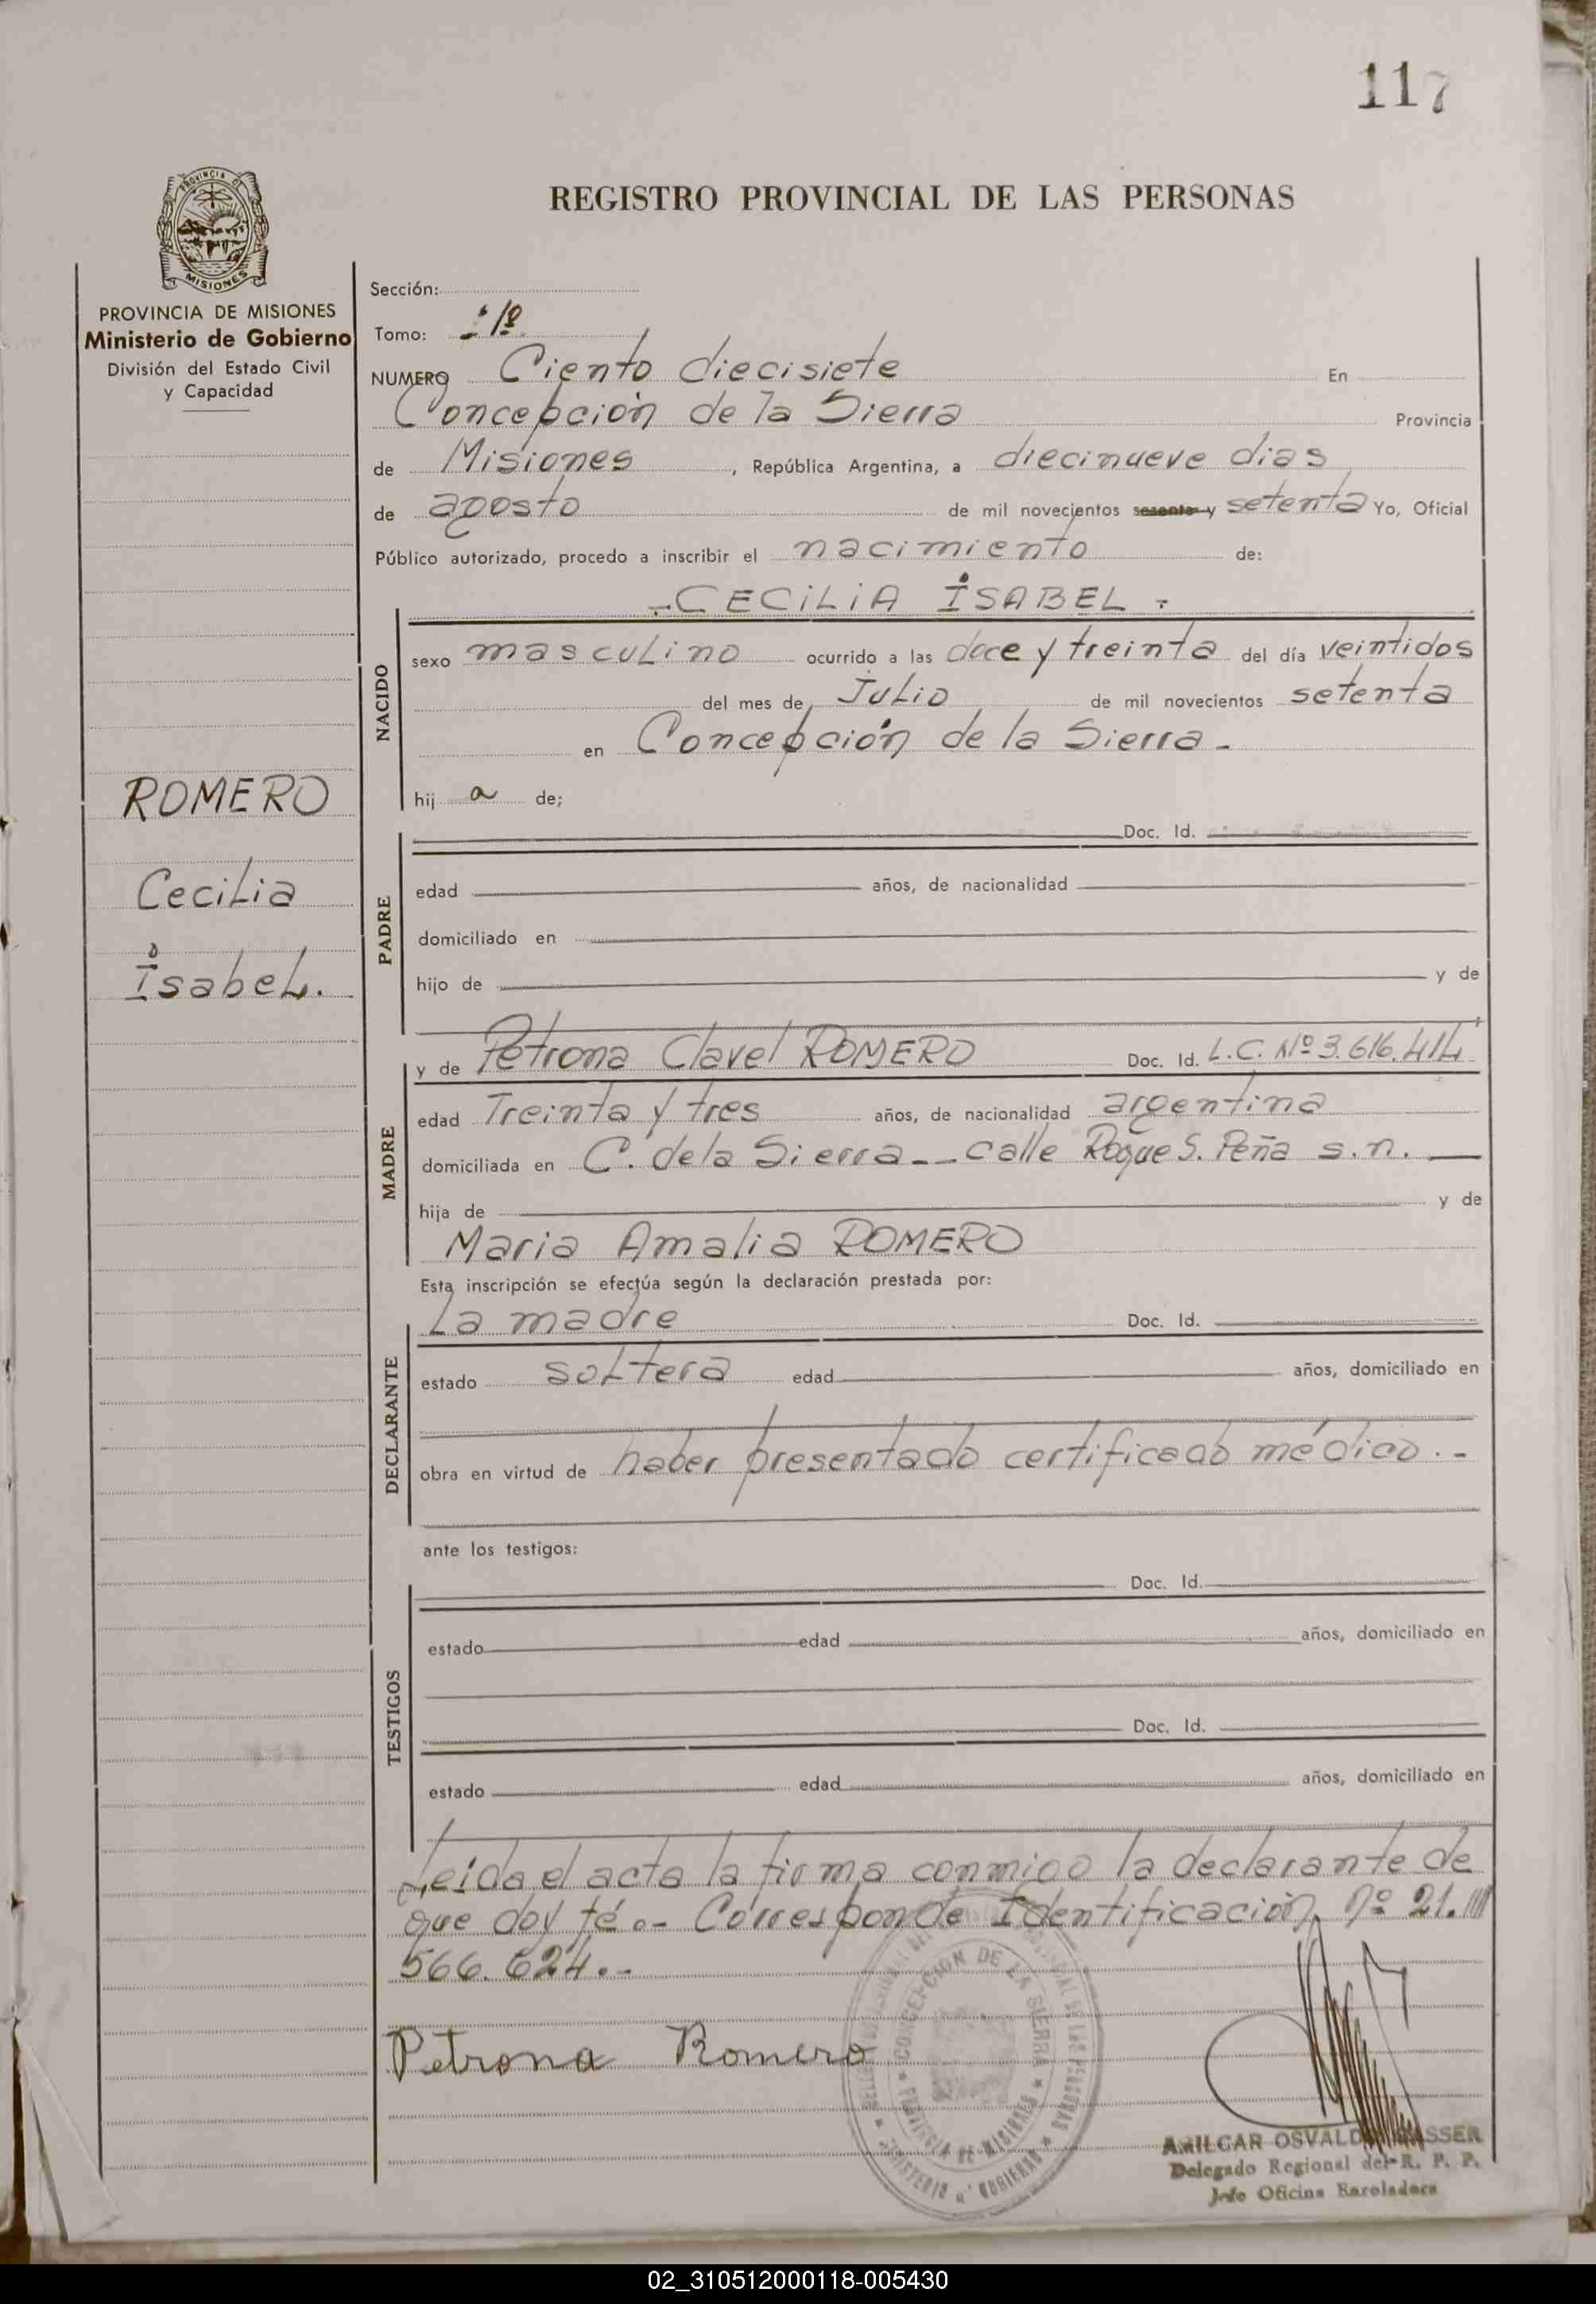 117
REGISTRO PROVINCIAL DE LAS PERSONAS
PROVINCIA DE
MISIONES
PROVINCIA DE MISIONES
Ministerio de Gobierno
División del Estado Civil
y Capacidad
ROMERO
Cecilia
Isabel.
Sección:
Tomo: 1º
NUMERO Ciento diecisiete En
Concepción de la Sierra Provincia
de Misiones, República Argentina, a diecinueve dias
de agosto de mil novecientos sesenta y setenta Yo, Oficial
Público autorizado, procedo a inscribir el nacimiento de:
-CECILIA ISABEL-
NACIDO
sexo masculino ocurrido a las doce y treinta del día veintidos
del mes de Julio de mil novecientos setenta
en Concepción de la Sierra-
hij a de;
PADRE
Doc. Id.
edad años, de nacionalidad
domiciliado en
hijo de y de
MADRE
y de Petrona Clavel ROMERO Doc. Id. L.C. Nº 3.616.414
edad Treinta y tres años, de nacionalidad argentina
domiciliada en C. de la Sierra-- calle Roque S. Peña s.n.
hija de y de
Maria Amalia ROMERO
Esta inscripción se efectúa según la declaración prestada por:
DECLARANTE
La madre Doc. Id.
estado soltera edad años, domiciliado en
obra en virtud de haber presentado certificado médico.-
ante los testigos:
TESTIGOS
Doc. Id.
estado edad años, domiciliado en
Doc. Id.
estado edad años, domiciliado en
Leída el acta la firma conmigo la declarante de
que doy fé.- Corresponde Identificación nº 21.
566.624.-
Petrona Romero
CONCEPCION DE LA SIERRA
PROVINCIA DE MISIONES
MINISTERIO DE GOBIERNO
AMILCAR OSVALDO
Delegado Regional del R. P. P.
Jefe Oficina Enroladora
02_310512000118-005430